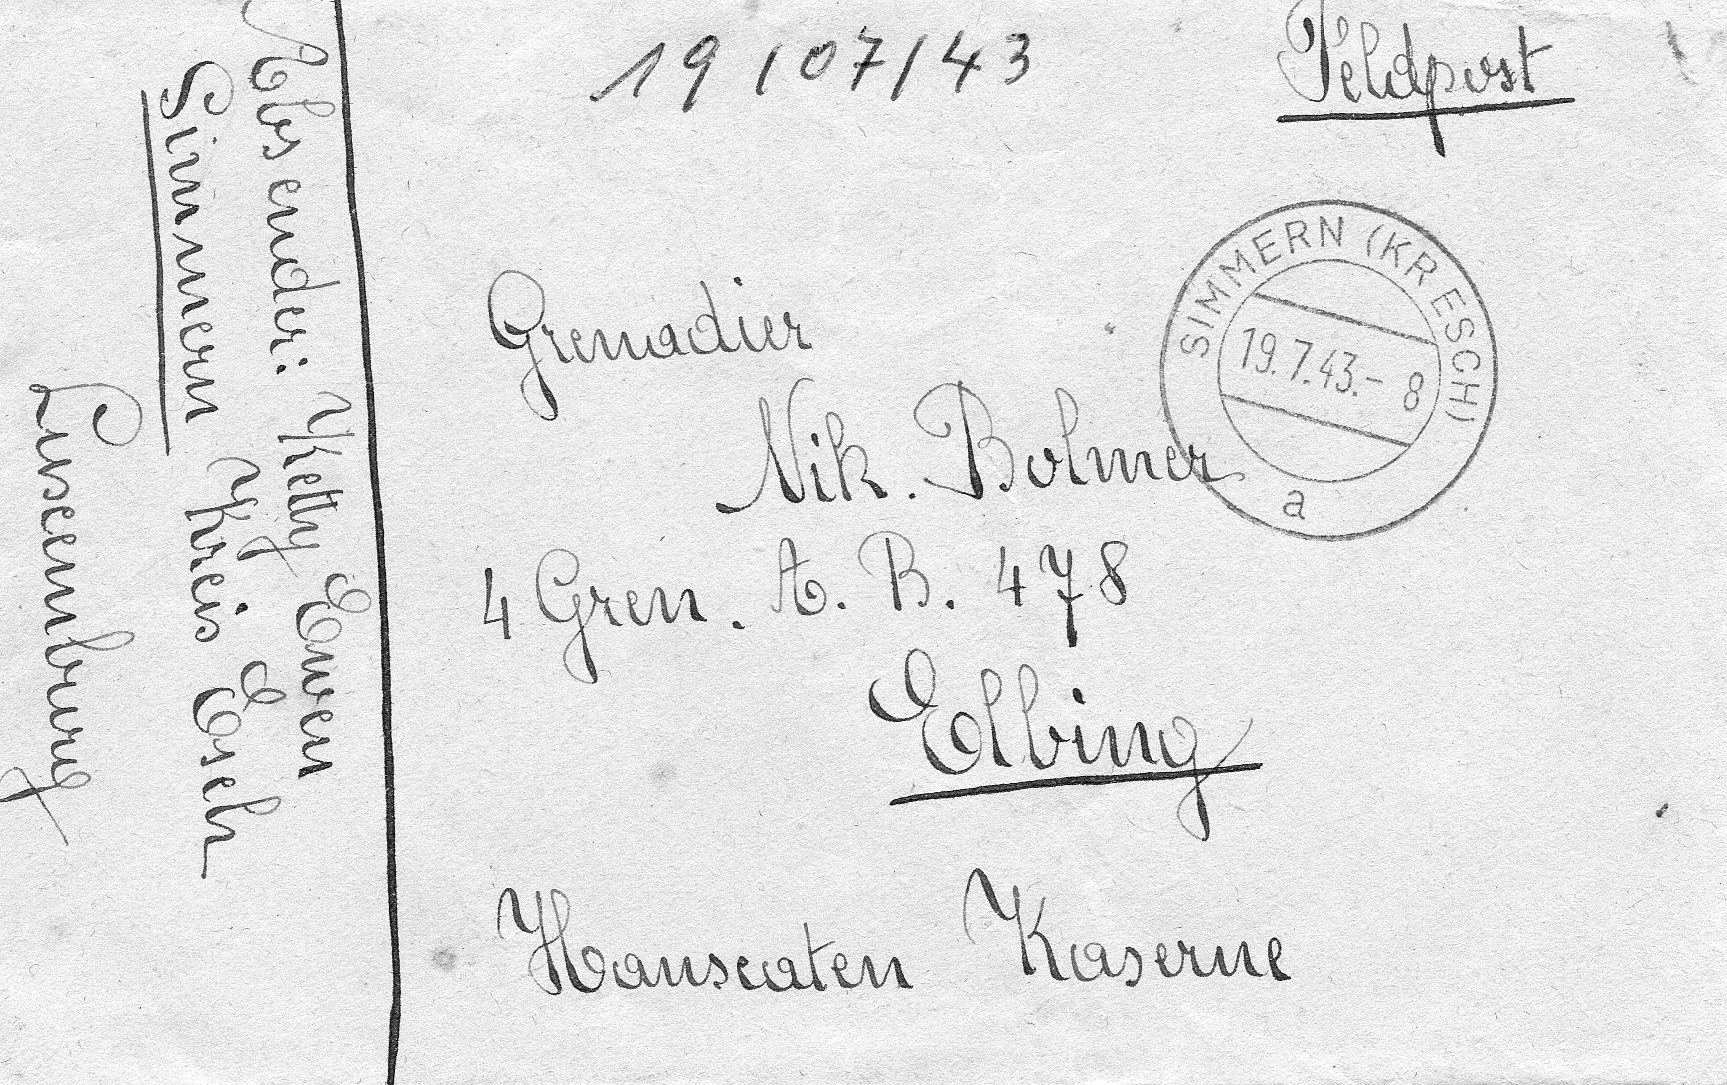 19/07/43
Feldpost
SIMMERN (KR ESCH)
19.7.43.- 8
a
Grenadier
Nik. Bolmer
4 Gren. A. B. 478
Elbing
Hanseaten Kaserne
Absender: Ketty Ewen
Simmern Kreis Esch
Luxemburg